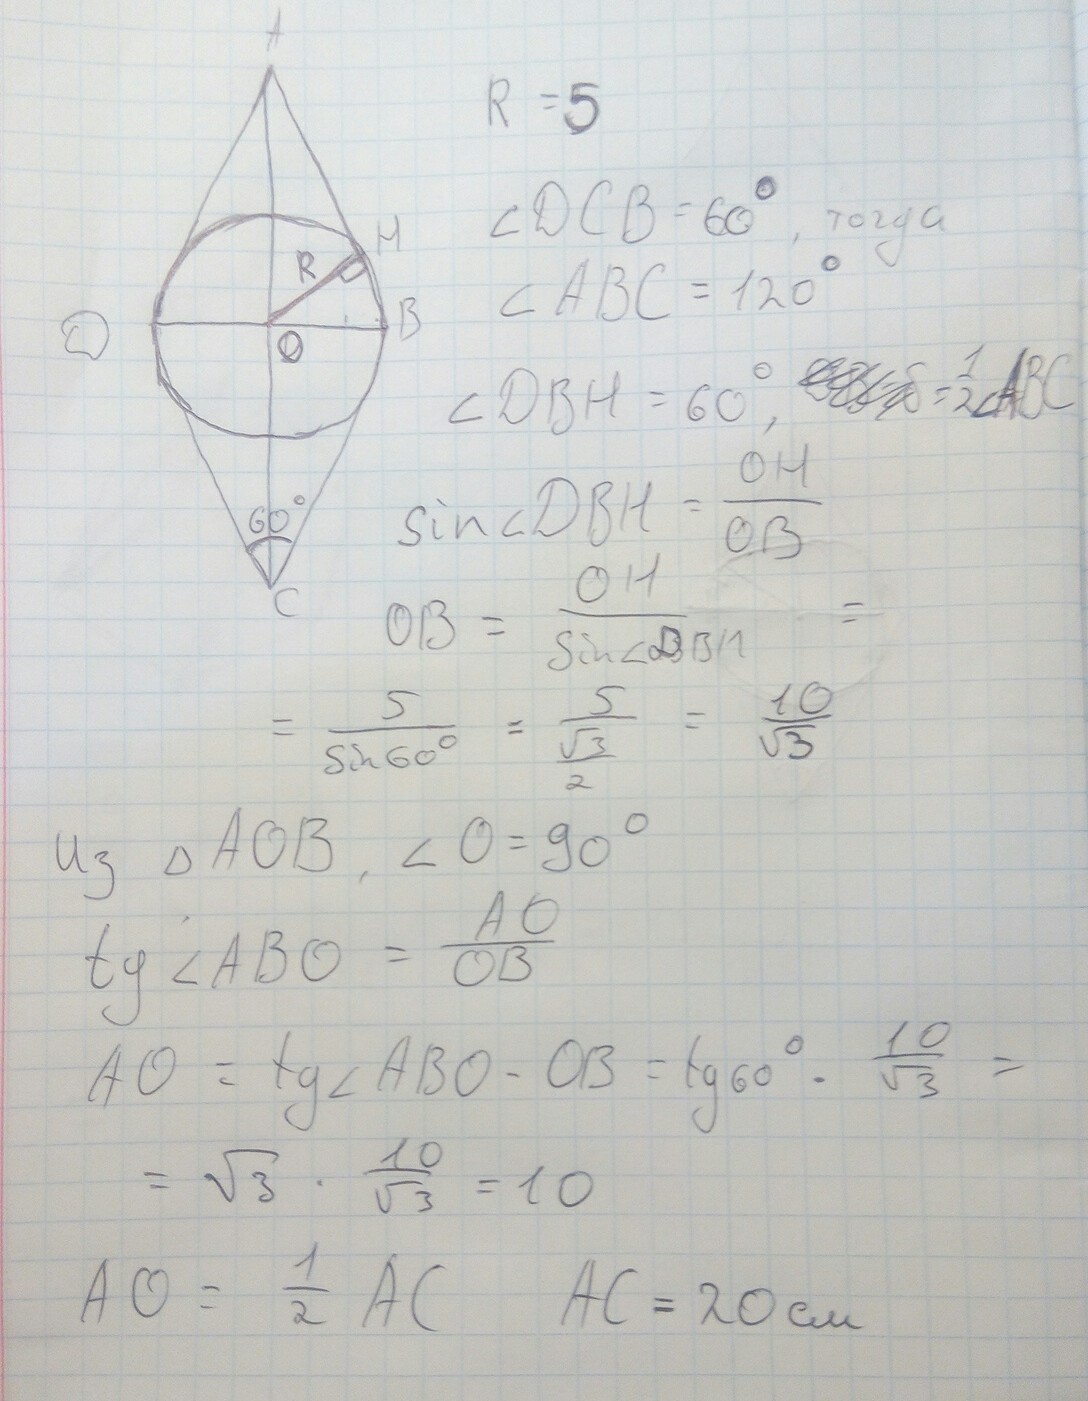 A
R = 5
∠DCB = 60°, тогда
H
R
∠ABC = 120°
D
B
O
∠DBH = 60°, = 1/2 ∠ABC
sin∠DBH = OH/OB
60°
C
OB = OH/sin∠DBH =
= 5/sin60° = 5/(√3/2) = 10/√3
Из △AOB, ∠O = 90°
tg∠ABO = AO/OB
AO = tg∠ABO · OB = tg60° · 10/√3 =
= √3 · 10/√3 = 10
AO = 1/2 AC AC = 20 см